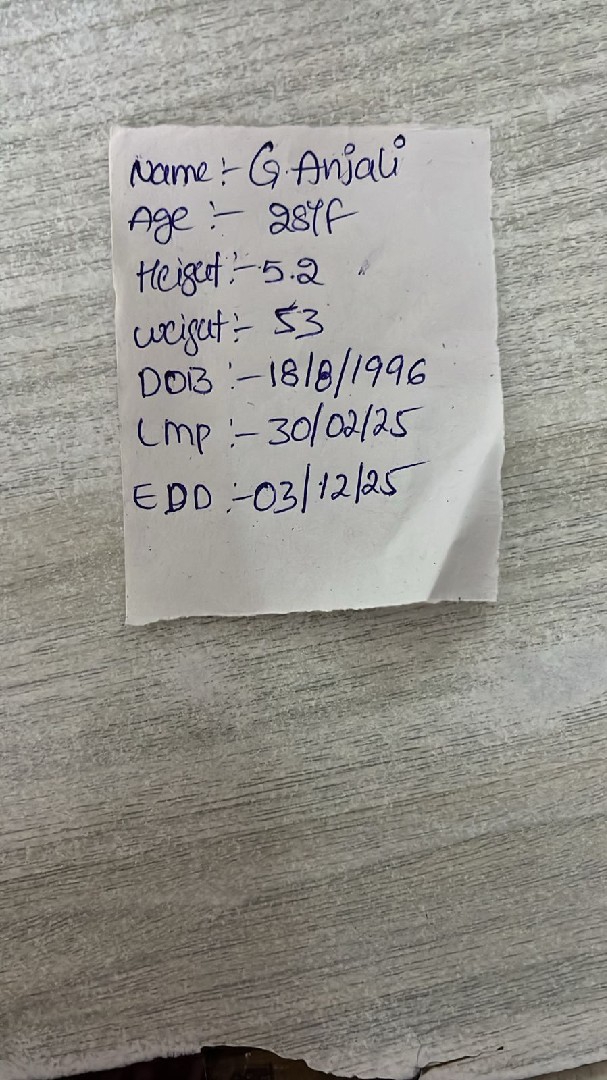 Name:- G.Anjali
Age :- 28Yf
Height:- 5.2
weight:- 53
DOB :- 18/8/1996
Lmp :- 30/02/25
EDD :- 03/12/25